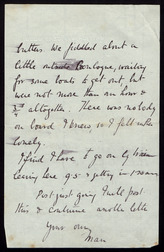 butter. We fiddled about a
little outside Boulogne, waiting
for some boats to get out, but
were not more than an hour &
altogether. There was nobody
on board I knew so I felt rather
lonely.
I find I have to go on by train
leaving here 9.5 & getting in 1
Post just going I will post
this & continue another letter
Your own
Man